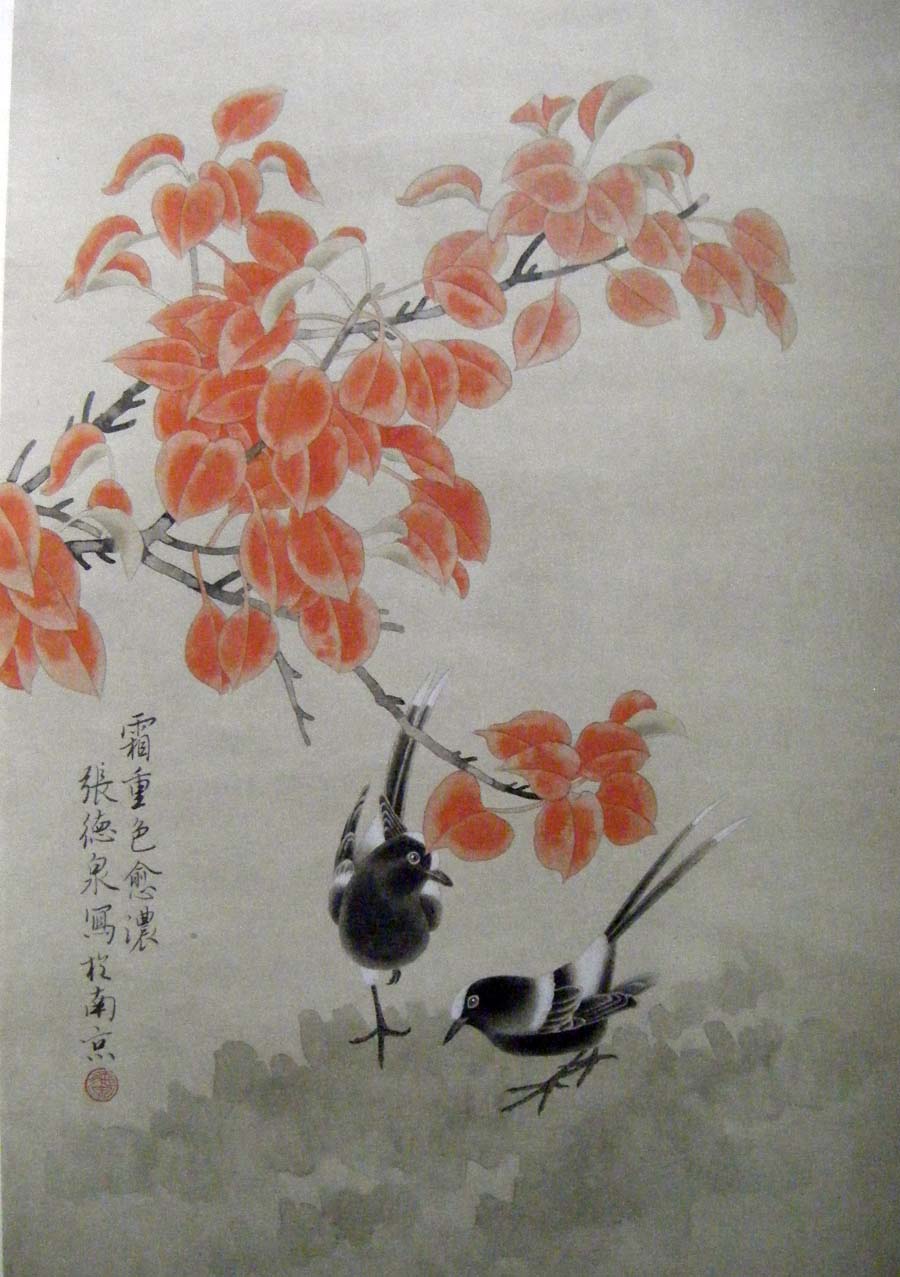 霜重色愈濃
張德泉寫於南京